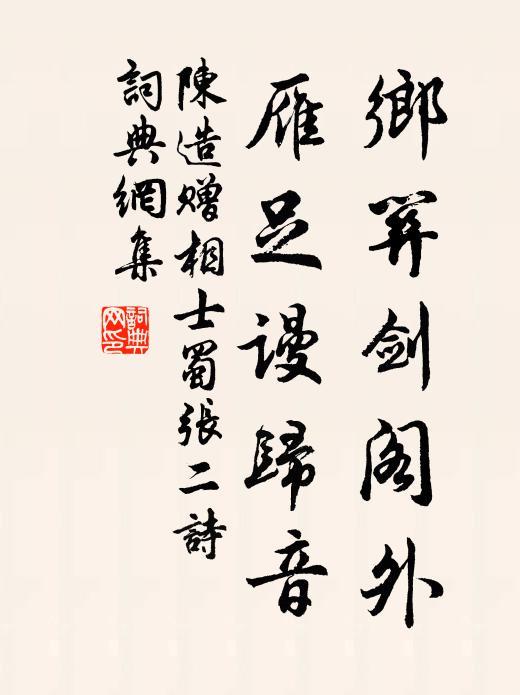 鄉關剑阁外
雁足謾歸音
陳造贈相士蜀張二詩
詞典網集
詞典网印